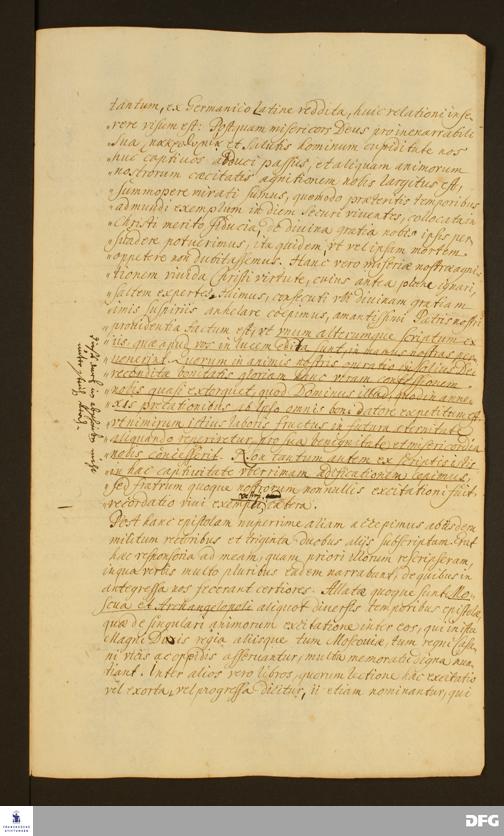 tantum, ex Germanico Latine reddita, huic relationi inse-
rere visum est: Postquam misericors Deus pro inenarrabili
sua et salutis hominum cupiditate nos
huc captivos adduci passus, et aliquam animarum
nostrorum cæcitatis agnitionem nobis largitus est,
summopere mirati sumus, quomodo præteritis temporibus
admundi exemplum in diem securi viventes, collocata in
Christi merito fiducia, de divina gratia nobis ipsis per
suadere potuerimus, ita quidem, ut vel ipsam mortem
appetere non dubitassemus. Hanc vero miseriæ nostræ agni-
tionem vivida Christi virtute, cuius antea ignari,
saltem expertes fuimus, consecuti ubi divinam gratiam
imis suspiriis anhelare cœpimus, amantissimi Patris nostri
providentia factum est, ut unum alterumque scriptum ex
iis, quæ apud vos in lucem edita sunt, in manus nostras per-
venerint. Quorum in animis nostris
recondita bonitatis gloriam hanc vram confessionem
nobis quasi extorquet, quod Dominus illud, quod in anne-
xis ab ipso omnis boni datore expetitum est
ut nimirum istius laboris fructus in futura æternitate
aliquando reperiretur, pro sua benignitate et misericordia
nobis concesserit. Non tantum autem ex scriptis istis
in hac captivitate uberrimam ædificationem cepimus,
sed fratrum quoque nostrorum nonnullis excitationi fuit
recordatio vivi exempli vestri cætera.
Post hanc epistolam nuperrime aliam accepimus ab iisdem
militum rectoribus et triginta duobus aliis subscriptam. Prout
hæc responsoria ad meam, quam priori illorum rescripseram,
in qua verbis multo pluribus eadem narrabunt, de quibus in
antegressa nos fecerant certiores. Allatæ quoque sunt Mo-
scua et Archangelopoli aliquot diversis temporibus epistolæ,
quæ de singulari animorum excitatione inter eos, qui in
Magni Ducis regia aliisque tum Moscoviæ, tum regni
ni vicis ac oppidis asservantur, multa memoratu digna nun-
tiant. Inter alios vero libros, quorum lectione hæc excitatio
vel exorta, vel progressa dicitur, ii etiam nominantur, qui
FRANCKESCHE STIFTUNGEN
DFG